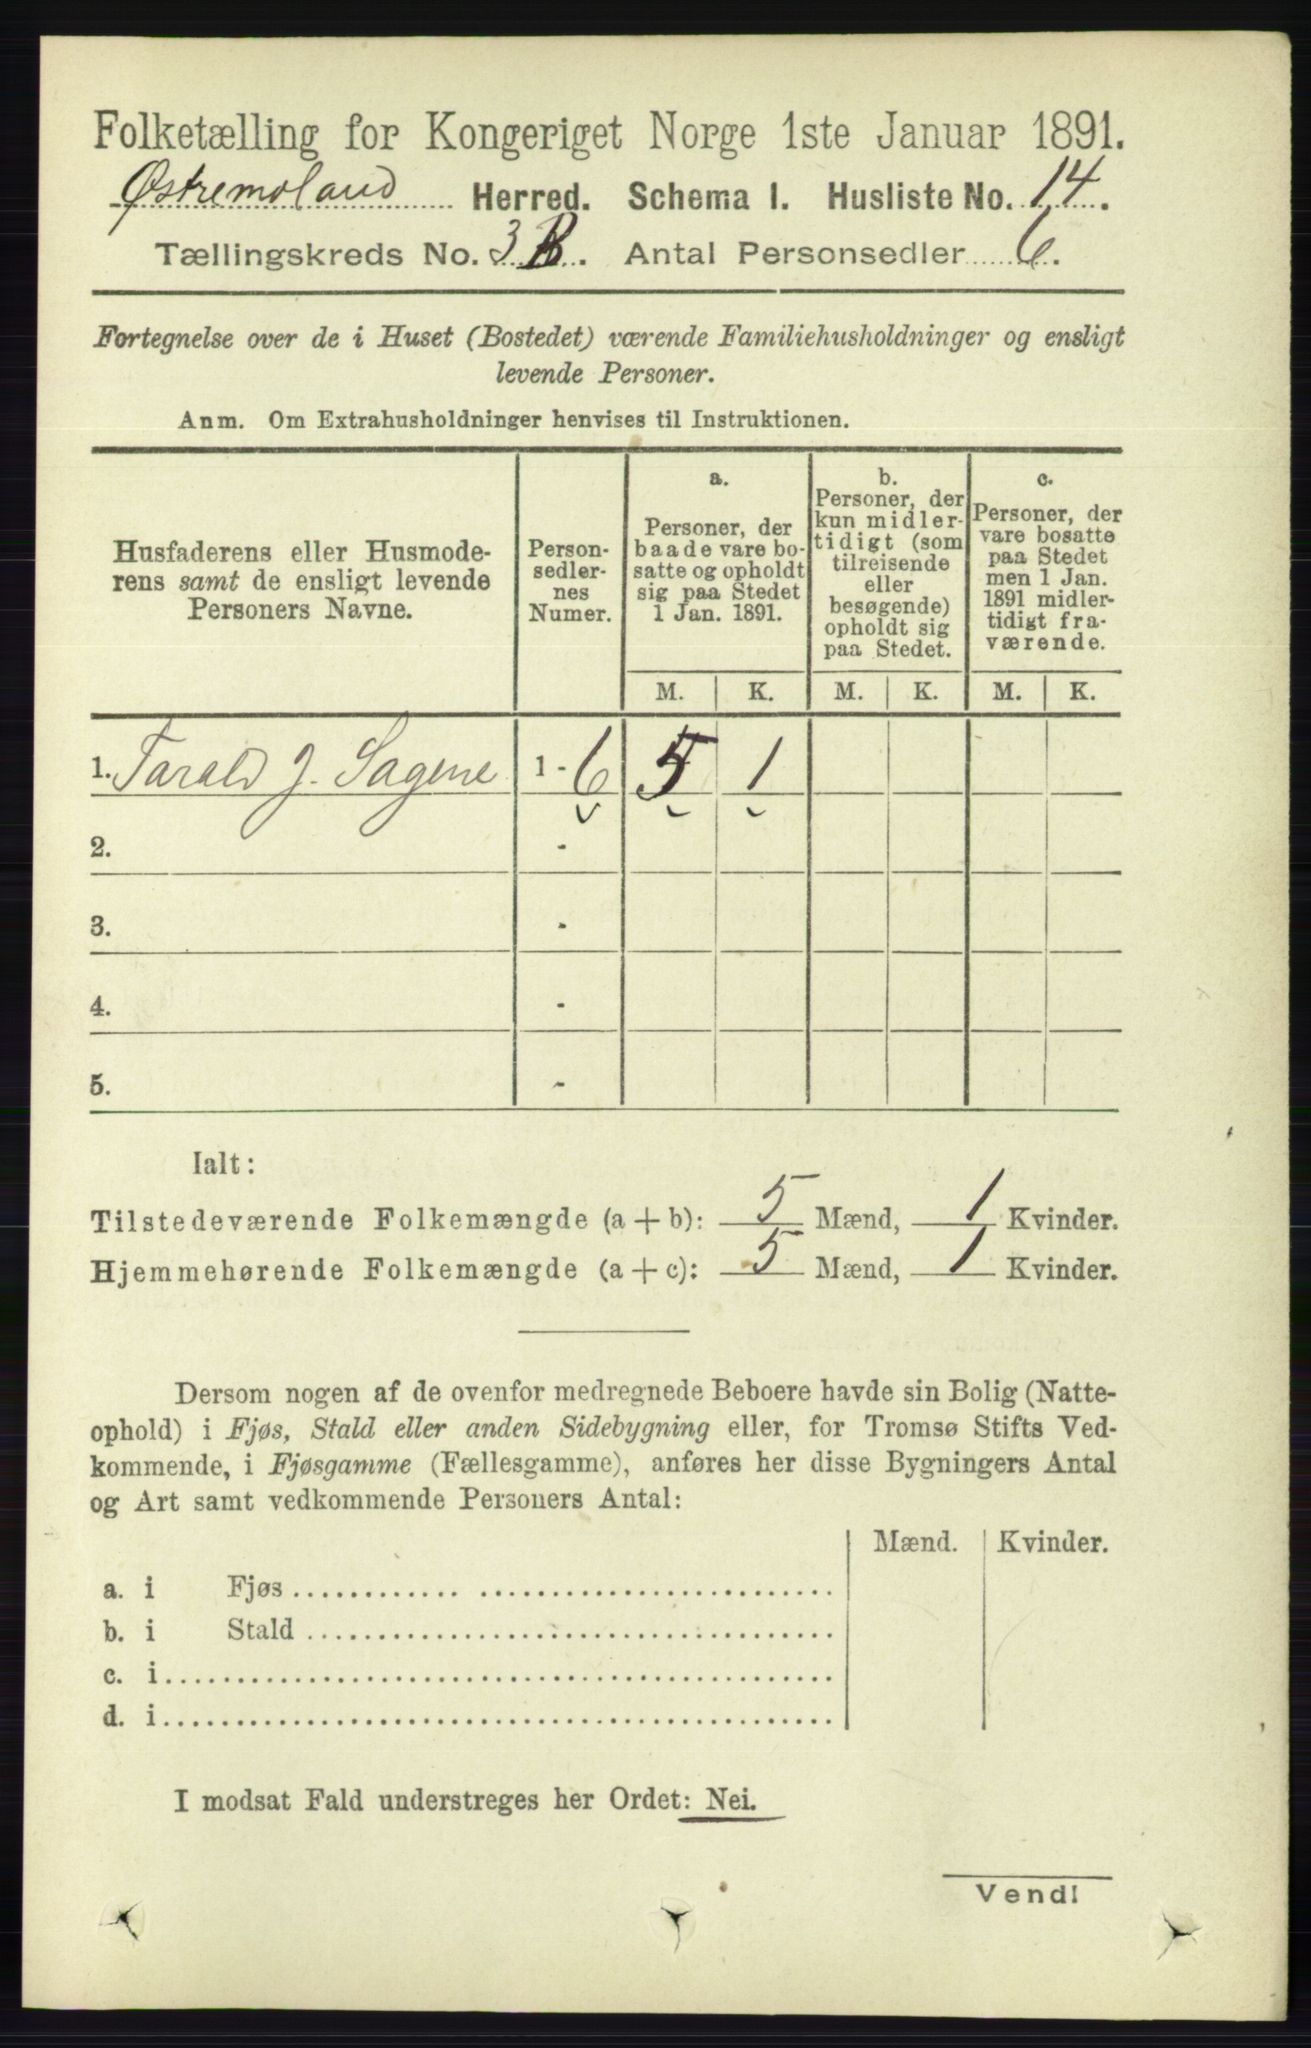 Folketælling for Kongeriget Norge 1ste Januar 1891.
Østremoland Herred. Schema I. Husliste No. 14.
Tællingskreds No. 3 B. Antal Personsedler 6.
Fortegnelse over de i Huset (Bostedet) værende Familiehusholdninger og ensligt
levende Personer.
Anm. Om Extrahusholdninger henvises til Instruktionen.
Husfaderens eller Husmode-
rens samt de ensligt levende
Personers Navne.
Person-
sedler-
nes
Numer.
a.
Personer, der
baade vare bo-
satte og opholdt
sig paa Stedet
1 Jan. 1891.
b.
Personer, der
kun midler-
tidigt (som
tilreisende
eller
besøgende)
opholdt sig
paa Stedet.
c.
Personer, der
vare bosatte
paa Stedet
men 1 Jan.
1891 midler-
tidigt fra-
værende.
M. K. M. K. M. K.
1. Tarald J. Sagene 1 - 6 5 1
2. -
3. -
4. -
5. -
Ialt:
Tilstedeværende Folkemængde (a + b): 5 Mænd, 1 Kvinder.
Hjemmehørende Folkemængde (a + c): 5 Mænd, 1 Kvinder.
Dersom nogen af de ovenfor medregnede Beboere havde sin Bolig (Natte-
ophold) i Fjøs, Stald eller anden Sidebygning eller, for Tromsø Stifts Ved-
kommende, i Fjøsgamme (Fællesgamme), anføres her disse Bygningers Antal
og Art samt vedkommende Personers Antal:
Mænd. Kvinder.
a. i Fjøs
b. i Stald
c. i
d. i
I modsat Fald understreges her Ordet: Nei.
Vend!